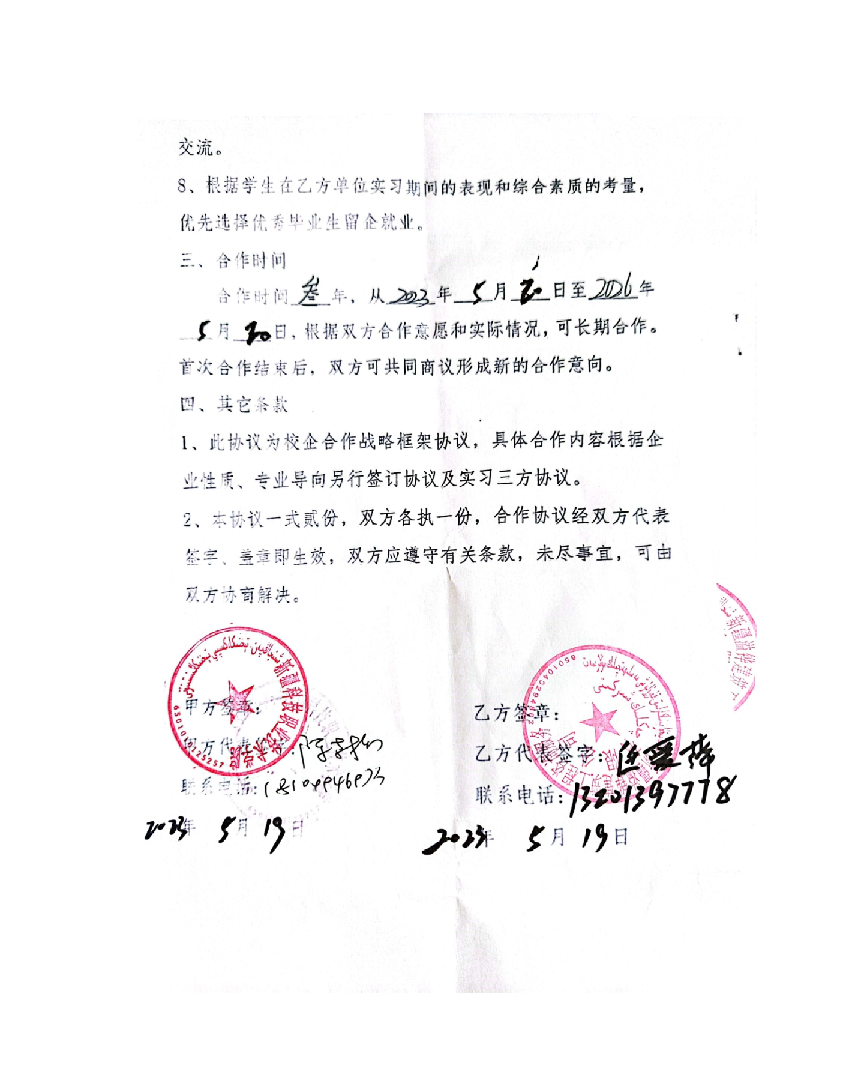 交流。
8、根据学生在乙方单位实习期间的表现和综合素质的考量，
优先选择优秀毕业生留企就业。
三、合作时间
合作时间 叁 年，从 2023 年 5 月 20 日至 2026 年
5 月 20 日，根据双方合作意愿和实际情况，可长期合作。
首次合作结束后，双方可共同商议形成新的合作意向。
四、其它条款
1、此协议为校企合作战略框架协议，具体合作内容根据企
业性质、专业导向另行签订协议及实习三方协议。
2、本协议一式贰份，双方各执一份，合作协议经双方代表
签字、盖章即生效，双方应遵守有关条款，未尽事宜，可由
双方协商解决。
新疆科技职业技术学院
6501010125257
甲方签章：
甲方代表签字：
联系电话：
2023年 5月 19日
乙方签章：
乙方代表签字：
联系电话：13201397778
2023年 5月 19日